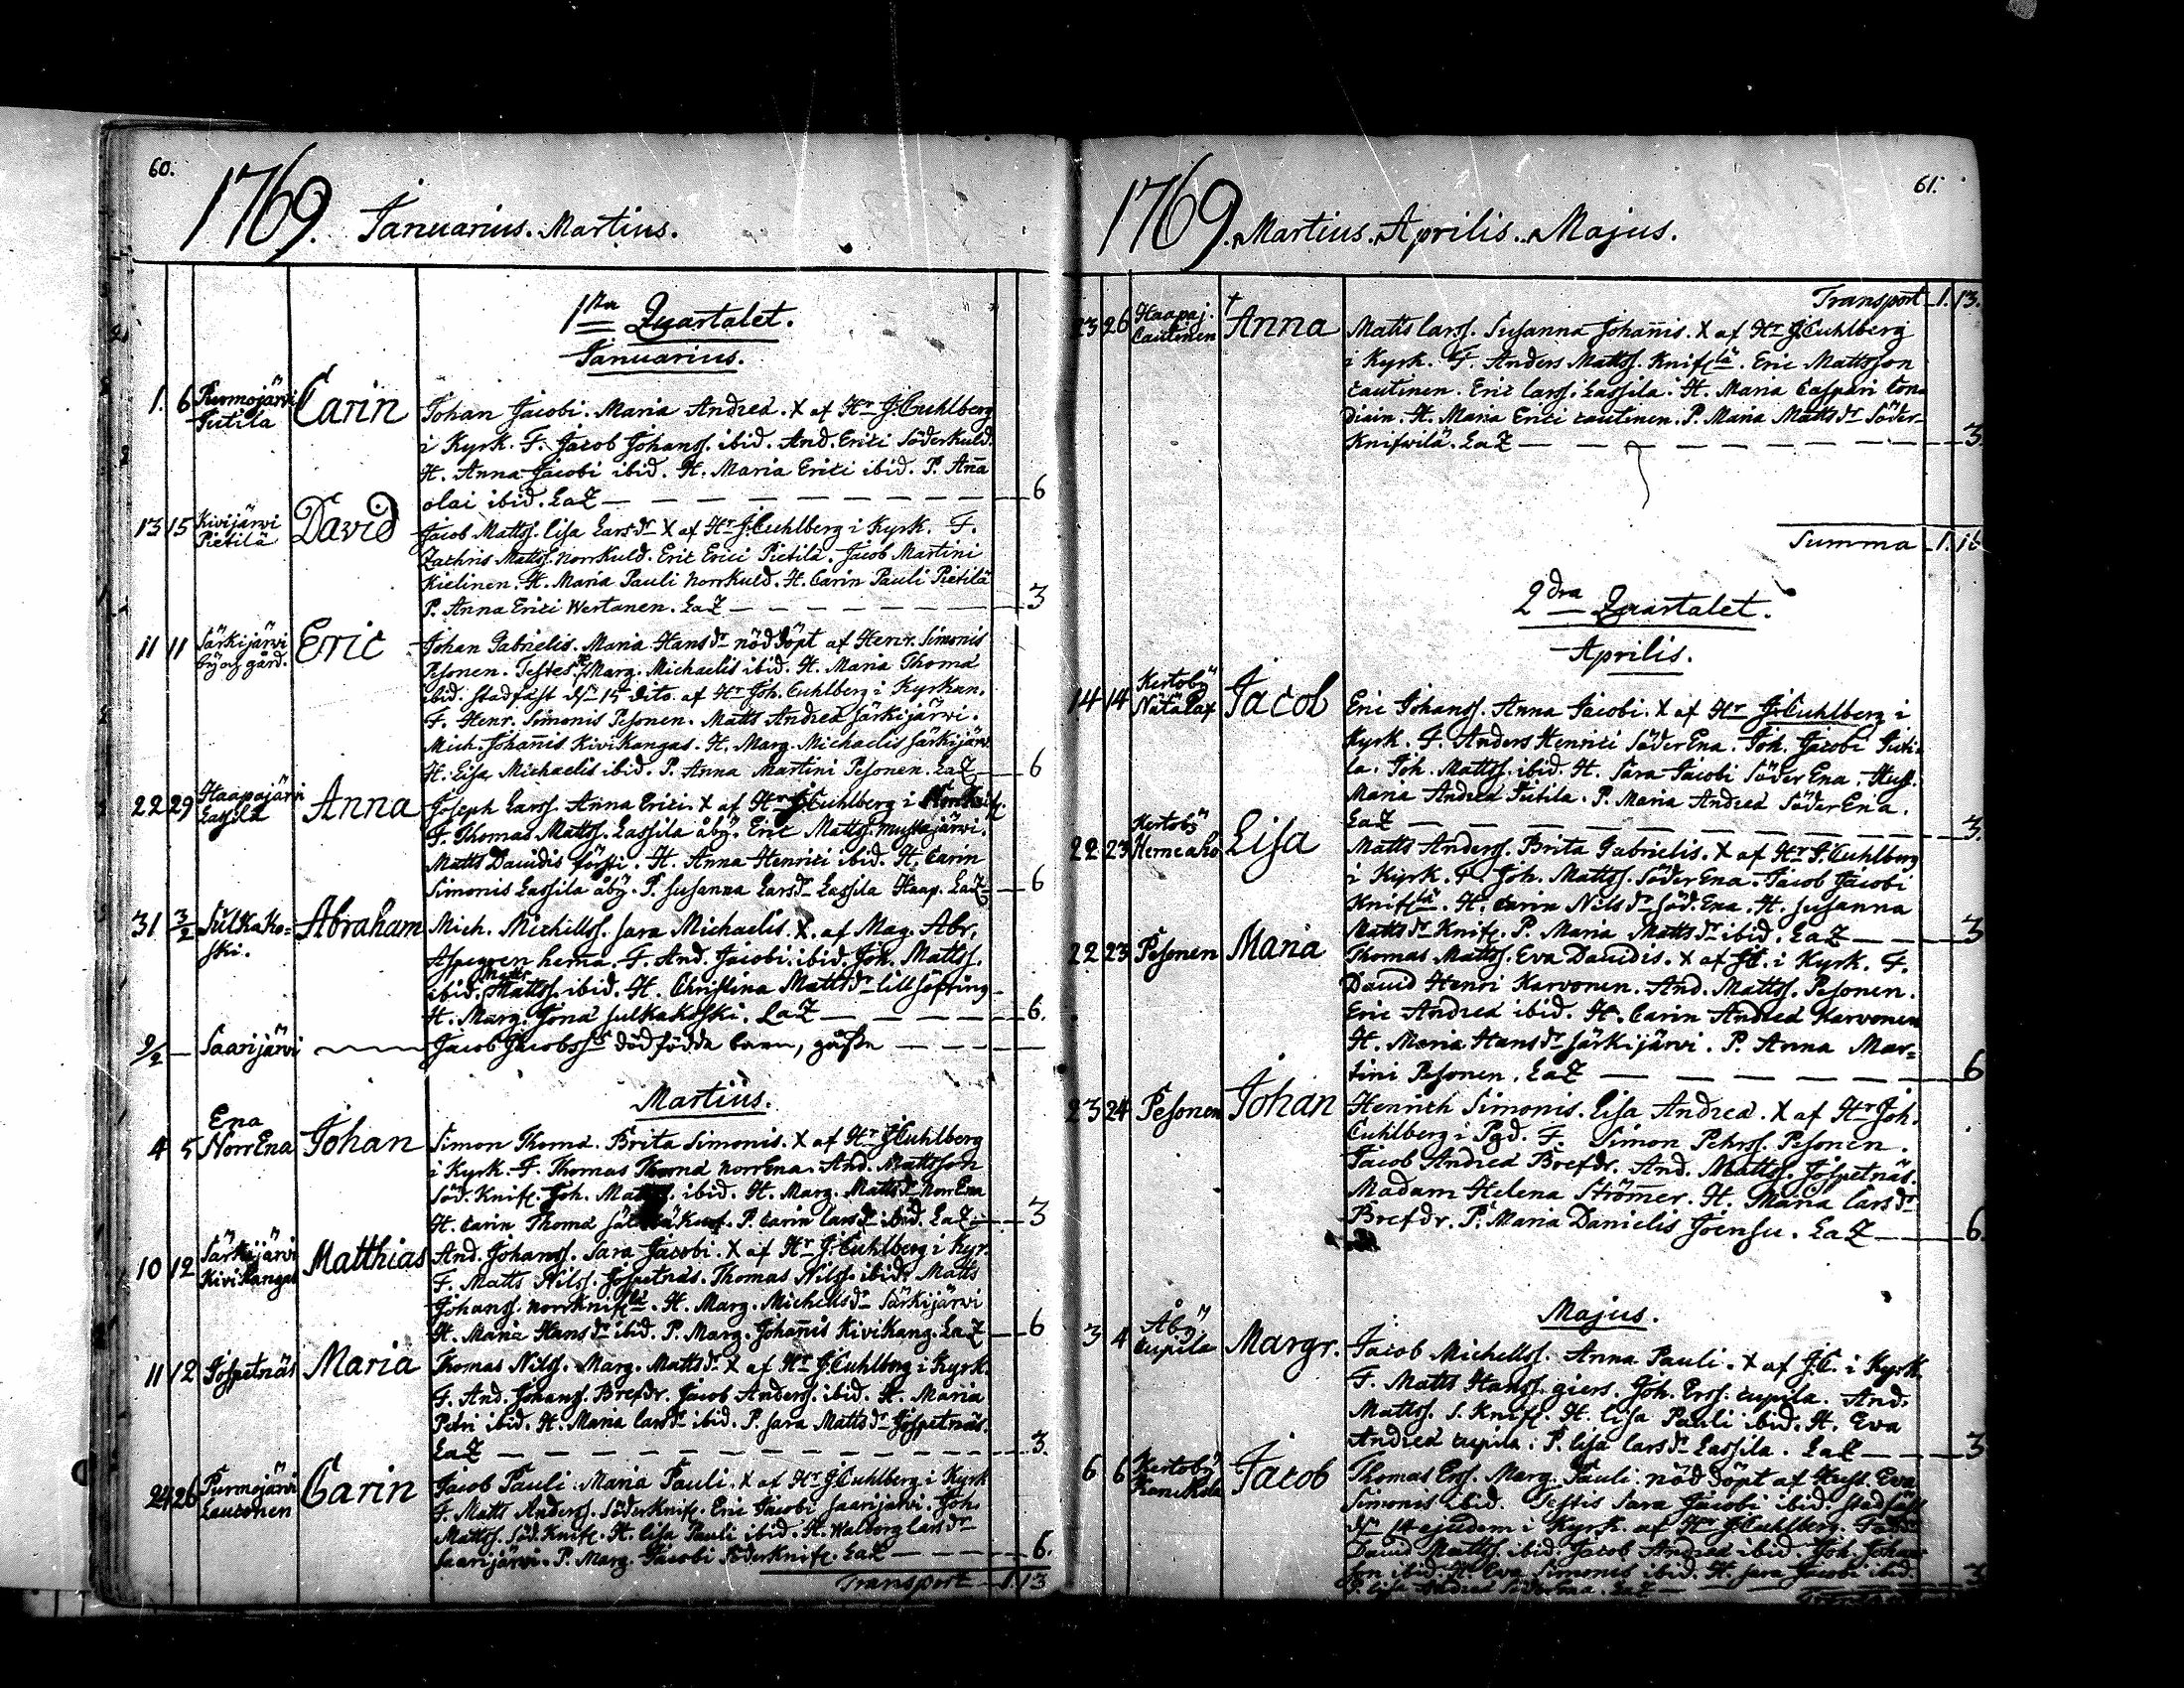 60.
1769. Januarius. Martius.
1sta Quartalet.
Januarius.
1. 6 Purmojärvi Jutila Carin Johan Jacobi. Maria Andreæ. X af Hr J. Cuhlberg
i Kyrk. F. Jacob Johanss. ibid. And. Erici Söderkuld.
H. Anna Jacobi ibid. H. Maria Erici ibid. P. Aña
olai ibid. LaZ — 6
13 15 Kivijärvi Pietilä David Jacob Mattss. Lisa Larsdr X af Hr J. Cuhlberg i Kyrk. F.
Zachris Mattss. Norrkuld. Eric Erici Pietilä. Jacob Martini
Kielinen. H. Maria Pauli Norrkuld. H. Carin Pauli Pietilä
P. Anna Erici Wertanen. LaZ — 3
11 11 Särkijärvi by och gård. Eric Johan Gabrielis. Maria Hansdr nöddöpt af Henr. Simonis
Pesonen. Testes Marg. Michaelis ibid. H. Maria Thomæ
ibid. stadfäst dn 15 dito. af Hr Joh. Cuhlberg i Kyrkan.
F. Henr. Simonis Pesonen. Matts Andreæ Särkijärvi.
Mich. Johañis Kivikangas. H. Marg. Michaelis Särkijärv.
H. Lisa Michaelis ibid. P. Anna Martini Pesonen. LaZ — 6
22 29 Haapajärvi Lassila Anna Joseph Larss. Anna Erici. X af Hr J. Cuhlberg i
F. Thomas Mattss. Lassila åby. Eric Mattss. mustajärvi.
Matts Davidis försti. H. Anna Henrici ibid. H. Carin
Simonis Lassila åby. P. Susanna Larsdr Lassila Haap. LaZ — 6
31 3/2 Sulkakoski. Abraham Mich. Michelss. Sara Michaelis. X. af Mag. Abr.
Aspegren hema. F. And. Jacobi. ibid. Joh. Mattss.
ibid. Matts Mattss. ibid. H. Christina Mattsdr lillsöfring
H. Marg. Jonæ Sulkakoski. LaZ — 6.
9/2 — Saarijärvi Jacob Jacobss dödfödda barn, gåsse —
Martius.
4 5 Ena NorrEna Johan Simon Thomæ. Brita Simonis. X af Hr J. Cuhlberg
i Kyrk. F. Thomas Thomæ NorrEna. And. Mattsson
Söd. Knif. Joh. Mattss. ibid. H. Marg. Mattsdr NorrEna
H. Carin Thomæ P. Carin Larsdr ibid. LaZ — 3
10 12 Särkijärvi Kivikangas Matthias And. Johanss. Sara Jacobi. X af Hr J. Cuhlberg i Kyr.
F. Matts Nilss. Jöspetnäs. Thomas Nilss. ibid. Matts
Johanss. NorrKniflä. H. Marg. Michelsdr Särkijärvi
H. Maria Hansdr ibid. P. Marg. Johañis Kivikang. LaZ — 6
11 12 Jöspetnäs Maria Thomas Nilss. Marg. Mattsdr X af Hr J. Cuhlberg i Kyrk.
F. And. Johanss. Brefdr. Jacob Anderss. ibid. H. Maria
Petri ibid. H. Maria Larsdr ibid. P. Sara Mattsdr Jöspetnäs.
LaZ — 3.
24 26 Purmojärvi Lautonen Carin Jacob Pauli. Maria Pauli. X af Hr J. Cuhlberg i Kyrk
F. Matts Anderss. Söderknif. Eric Jacobi Saarijärvi. Joh.
Mattss. Söd. Knif. H. Lisa Pauli ibid. H. Walborg Larsdr
Saarijärvi. P. Marg. Jacobi Söderknif. LaZ — 6.
Transport 1.13
61.
1769. Martius. Aprilis. Majus.
Transport 1.13.
23 26 Haapaj. Cautinen † Anna Matts Larss. Susanna Johañis. X af Hr J. Cuhlberg
i Kyrk. F. Anders Mattss. Kniflä. Eric Mattsson
Cautinen. Eric Larss. Lassila. H. Maria Caspari Con
diain. H. Maria Erici Cautinen. P. Maria Mattsdr Söder-
Knifvilä. LaZ — 3
Summa 1.16
2dra Quartalet.
Aprilis.
14 14 Kortoby Jacob Eric Johanss. Anna Jacobi. X af Hr J. Cuhlberg i
Kyrk. F. Anders Henrici SöderEna. Joh. Jacobi Juti-
la. Joh. Mattss. ibid. H. Sara Jacobi SöderEna. Hust.
Maria Andreæ Jutila. P. Maria Andreæ SöderEna.
LaZ — 3.
22 23 Kortoby Herneaho Lisa Matts Anderss. Brita Gabrielis. X af Hr J. Cuhlberg
i Kyrk. F. Joh. Mattss. SöderEna. Jacob Jacobi
Kniflä. H. Carin Nilsdr Söd. Ena. H. Susanna
Mattsdr Knif. P. Maria Mattsdr ibid. LaZ — 3
22 23 Pesonen Maria Thomas Mattss. Eva Davidis. X af JC. i Kyrk. F.
David Henri Karvonen. And. Mattss. Pesonen.
Eric Andreæ ibid. H. Carin Andreæ Karvonen
H. Maria Hansdr Särkijärvi. P. Anna Mar-
tini Pesonen. LaZ — 6
23 24 Pesonen Johan Henrich Simonis. Lisa Andreæ. X af Hr Joh.
Cuhlberg i Pgd. F. Simon Pehrss. Pesonen.
Jacob Andreæ Brefdr. And. Mattss. Jöspetnäs.
Madam Helena Strömer. H. Maria Larsdr
Brefdr. P. Maria Danielis Joensu. LaZ — 6
Majus.
3 4 Åby Cupila Margr. Jacob Michelss. Anna Pauli. X af J.C. i Kyrk
F. Matts Hanss. giers. Joh. Erss. Cupila. And.
Mattss. S. Knif. H. Lisa Pauli ibid. H. Eva
Andreæ Cupila. P. Lisa Larsdr Lassila. LaZ — 3
6 6 Kortoby Jacob Thomas Erss. Marg. Pauli. nöddöpt af Hust. Eva
Simonis ibid. Testis Sara Jacobi ibid. stadfäst
dn 14 ejusdem i Kyrk. af Hr J. Cuhlberg.
David Mattss. ibid. Jacob Andreæ ibid. Joh. Johans
son ibid. H. Eva Simonis ibid. H. Sara Jacobi ibid.
P. Lisa Andreæ SöderEna. LaZ — 3